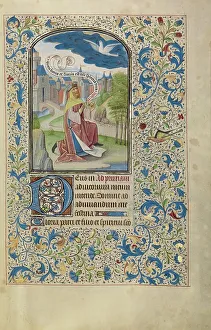 Deus in Ad primam
adiutorium meum
intende. Domine ad
adiuvandum me
festina
Gloria patri et filio et spiritui san